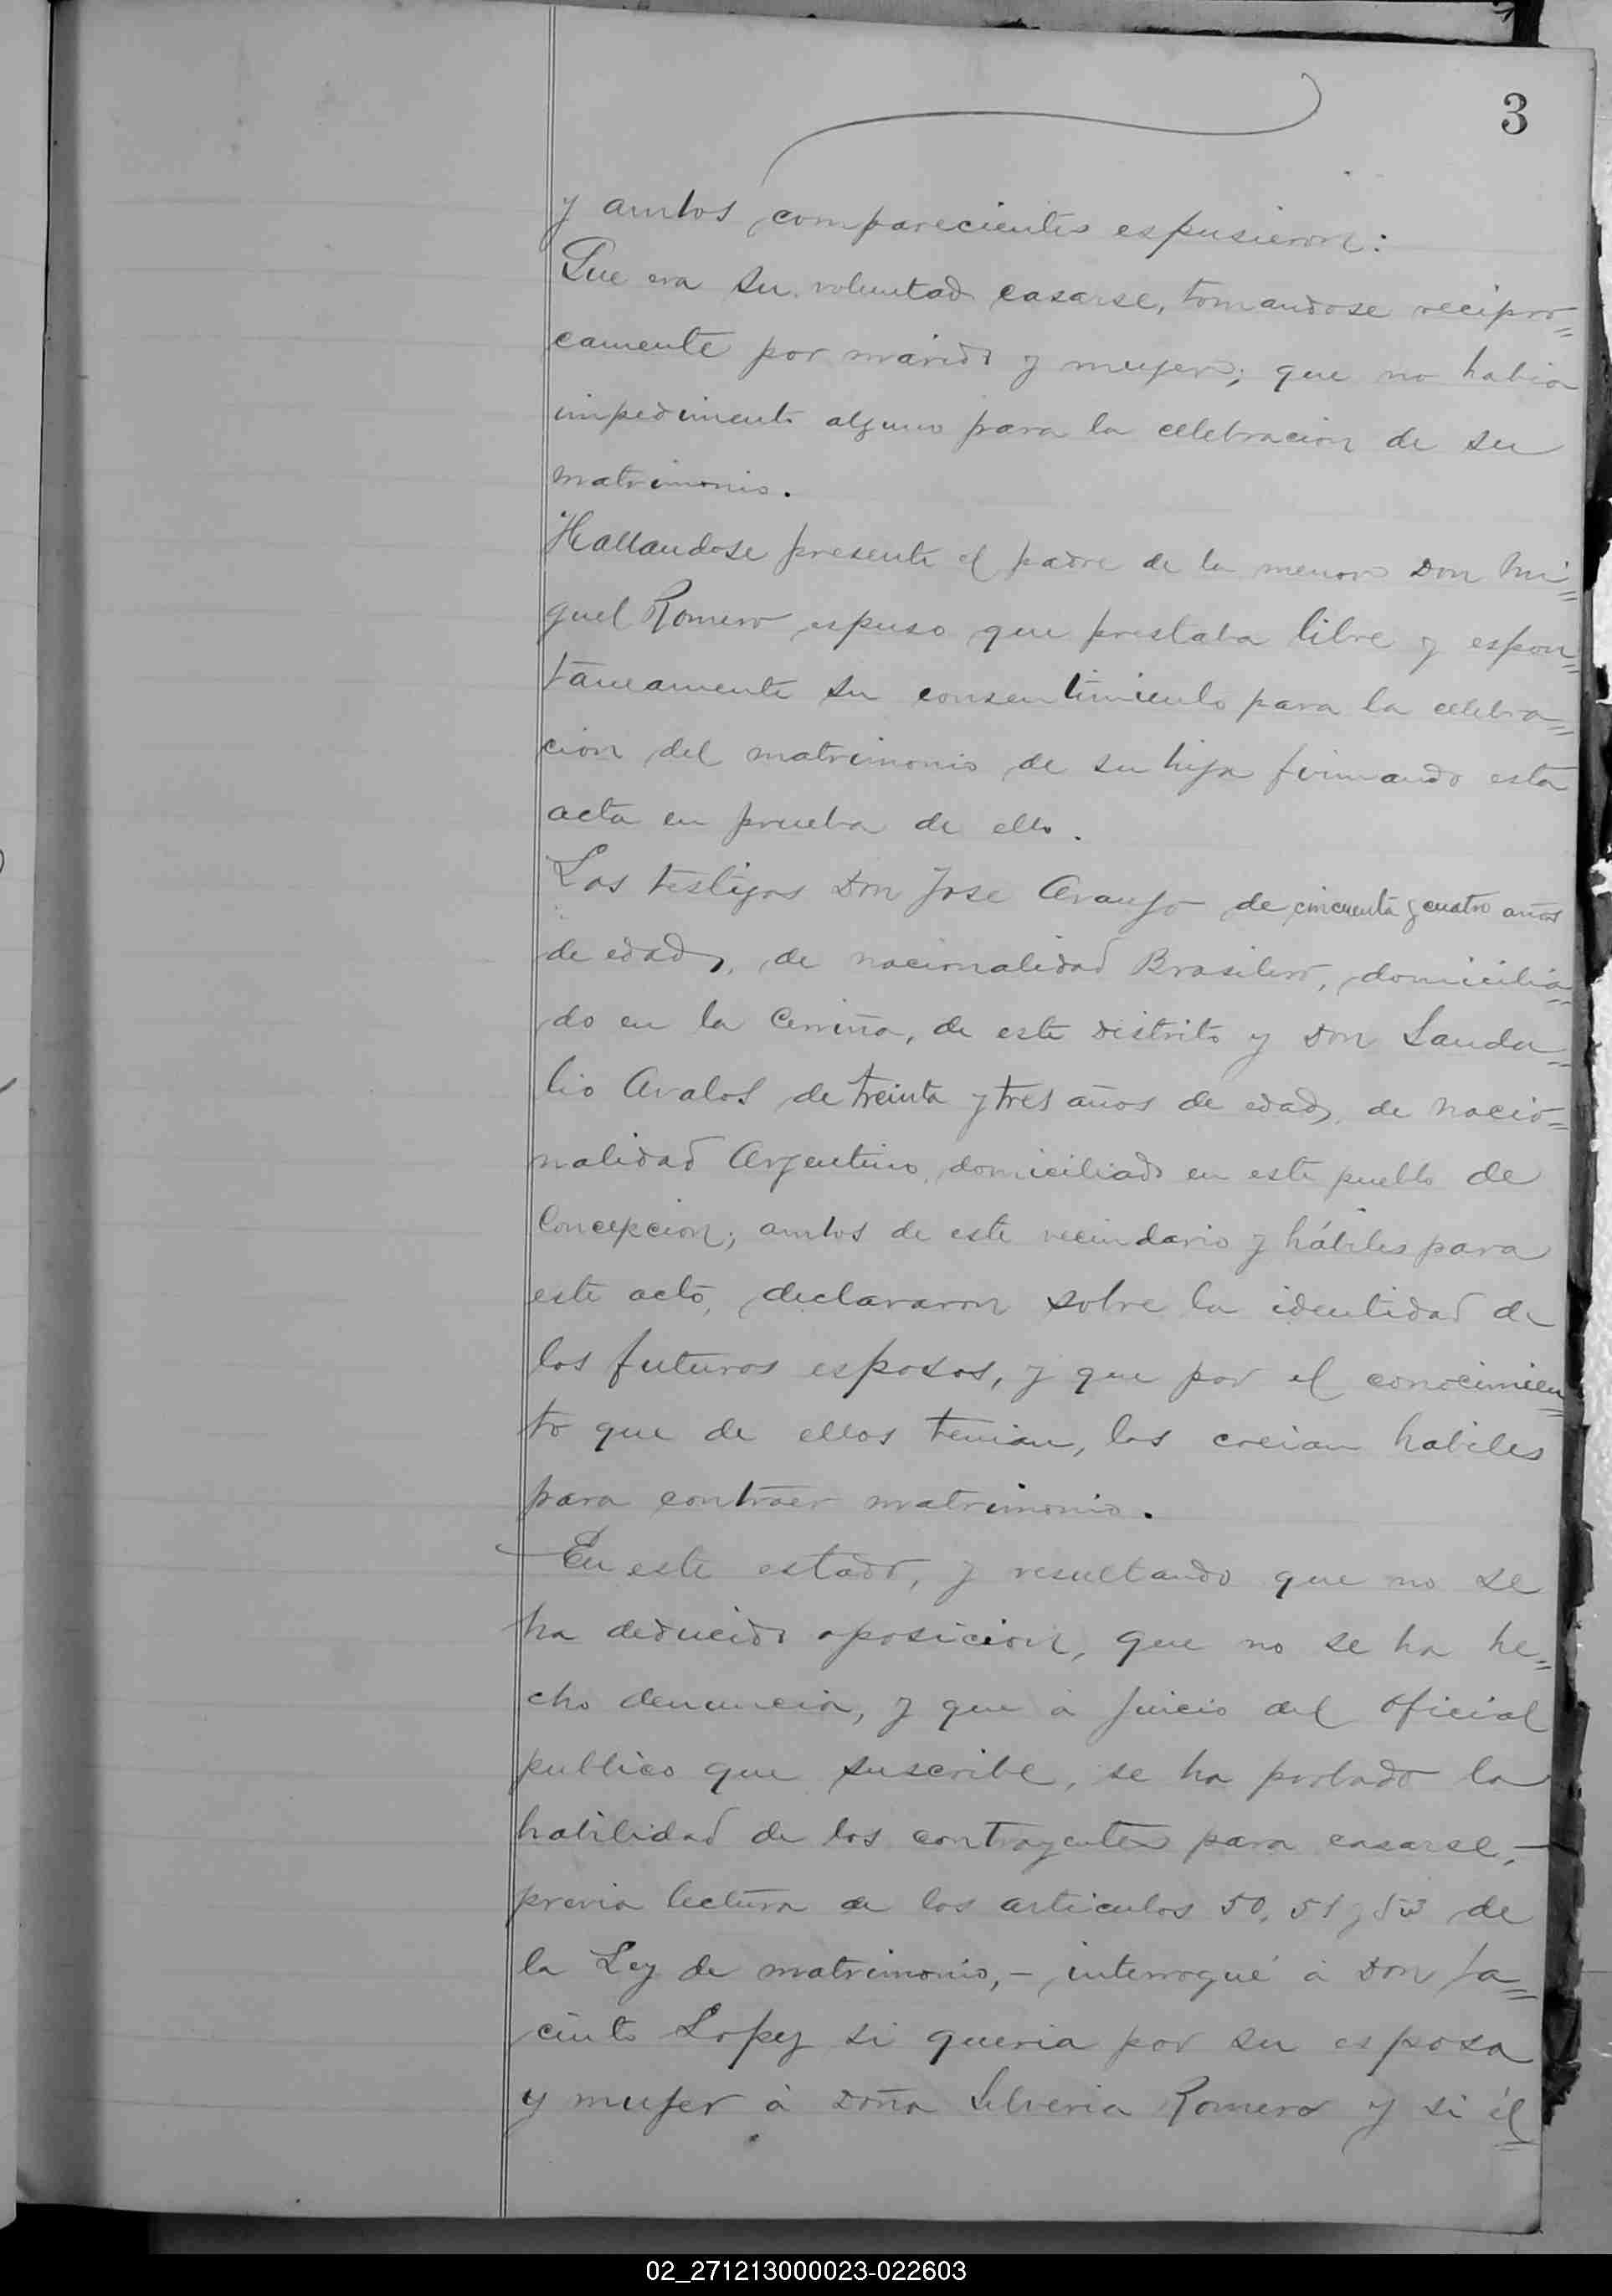 3
y ambos comparecientes espusieron:
Que era su voluntad casarse, tomandose recipro=
camente por marido y mujer; que no habia
impedimento alguno para la celebracion de su
matrimonio.
Hallandose presente el padre de la menor Don Mi=
guel Romero espuso que prestaba libre y espon=
taneamente su consentimiento para la celebra=
cion del matrimonio de su hija firmando esta
acta en prueba de ello.
Los testigos Don Jose Araujo de cincuenta y cuatro años
de edad, de nacionalidad Brasilero, domicilia=
do en la de este distrito y Don Sanda=
lio Avalos de treinta y tres años de edad, de nacio=
nalidad Argentino, domiciliado en este pueblo de
Concepcion; ambos de este vecindario y hábiles para
este acto, declararon sobre la identidad de
los futuros esposos, y que por el conocimien=
to que de ellos tenian, los creian habiles
para contraer matrimonio.
En este estado, y resultando que no se
ha deducido oposicion, que no se ha he=
cho denuncia, y que á juicio del oficial
publico que suscribe, se ha probado la
habilidad de los contrayentes para casarse,-
previa lectura de los articulos 50, 51 y 53 de
la Ley de matrimonio,- interrogué á Don Ja=
cinto Lopez si queria por su esposa
y mujer á Doña Silveria Romero y si él
02_271213000023-022603